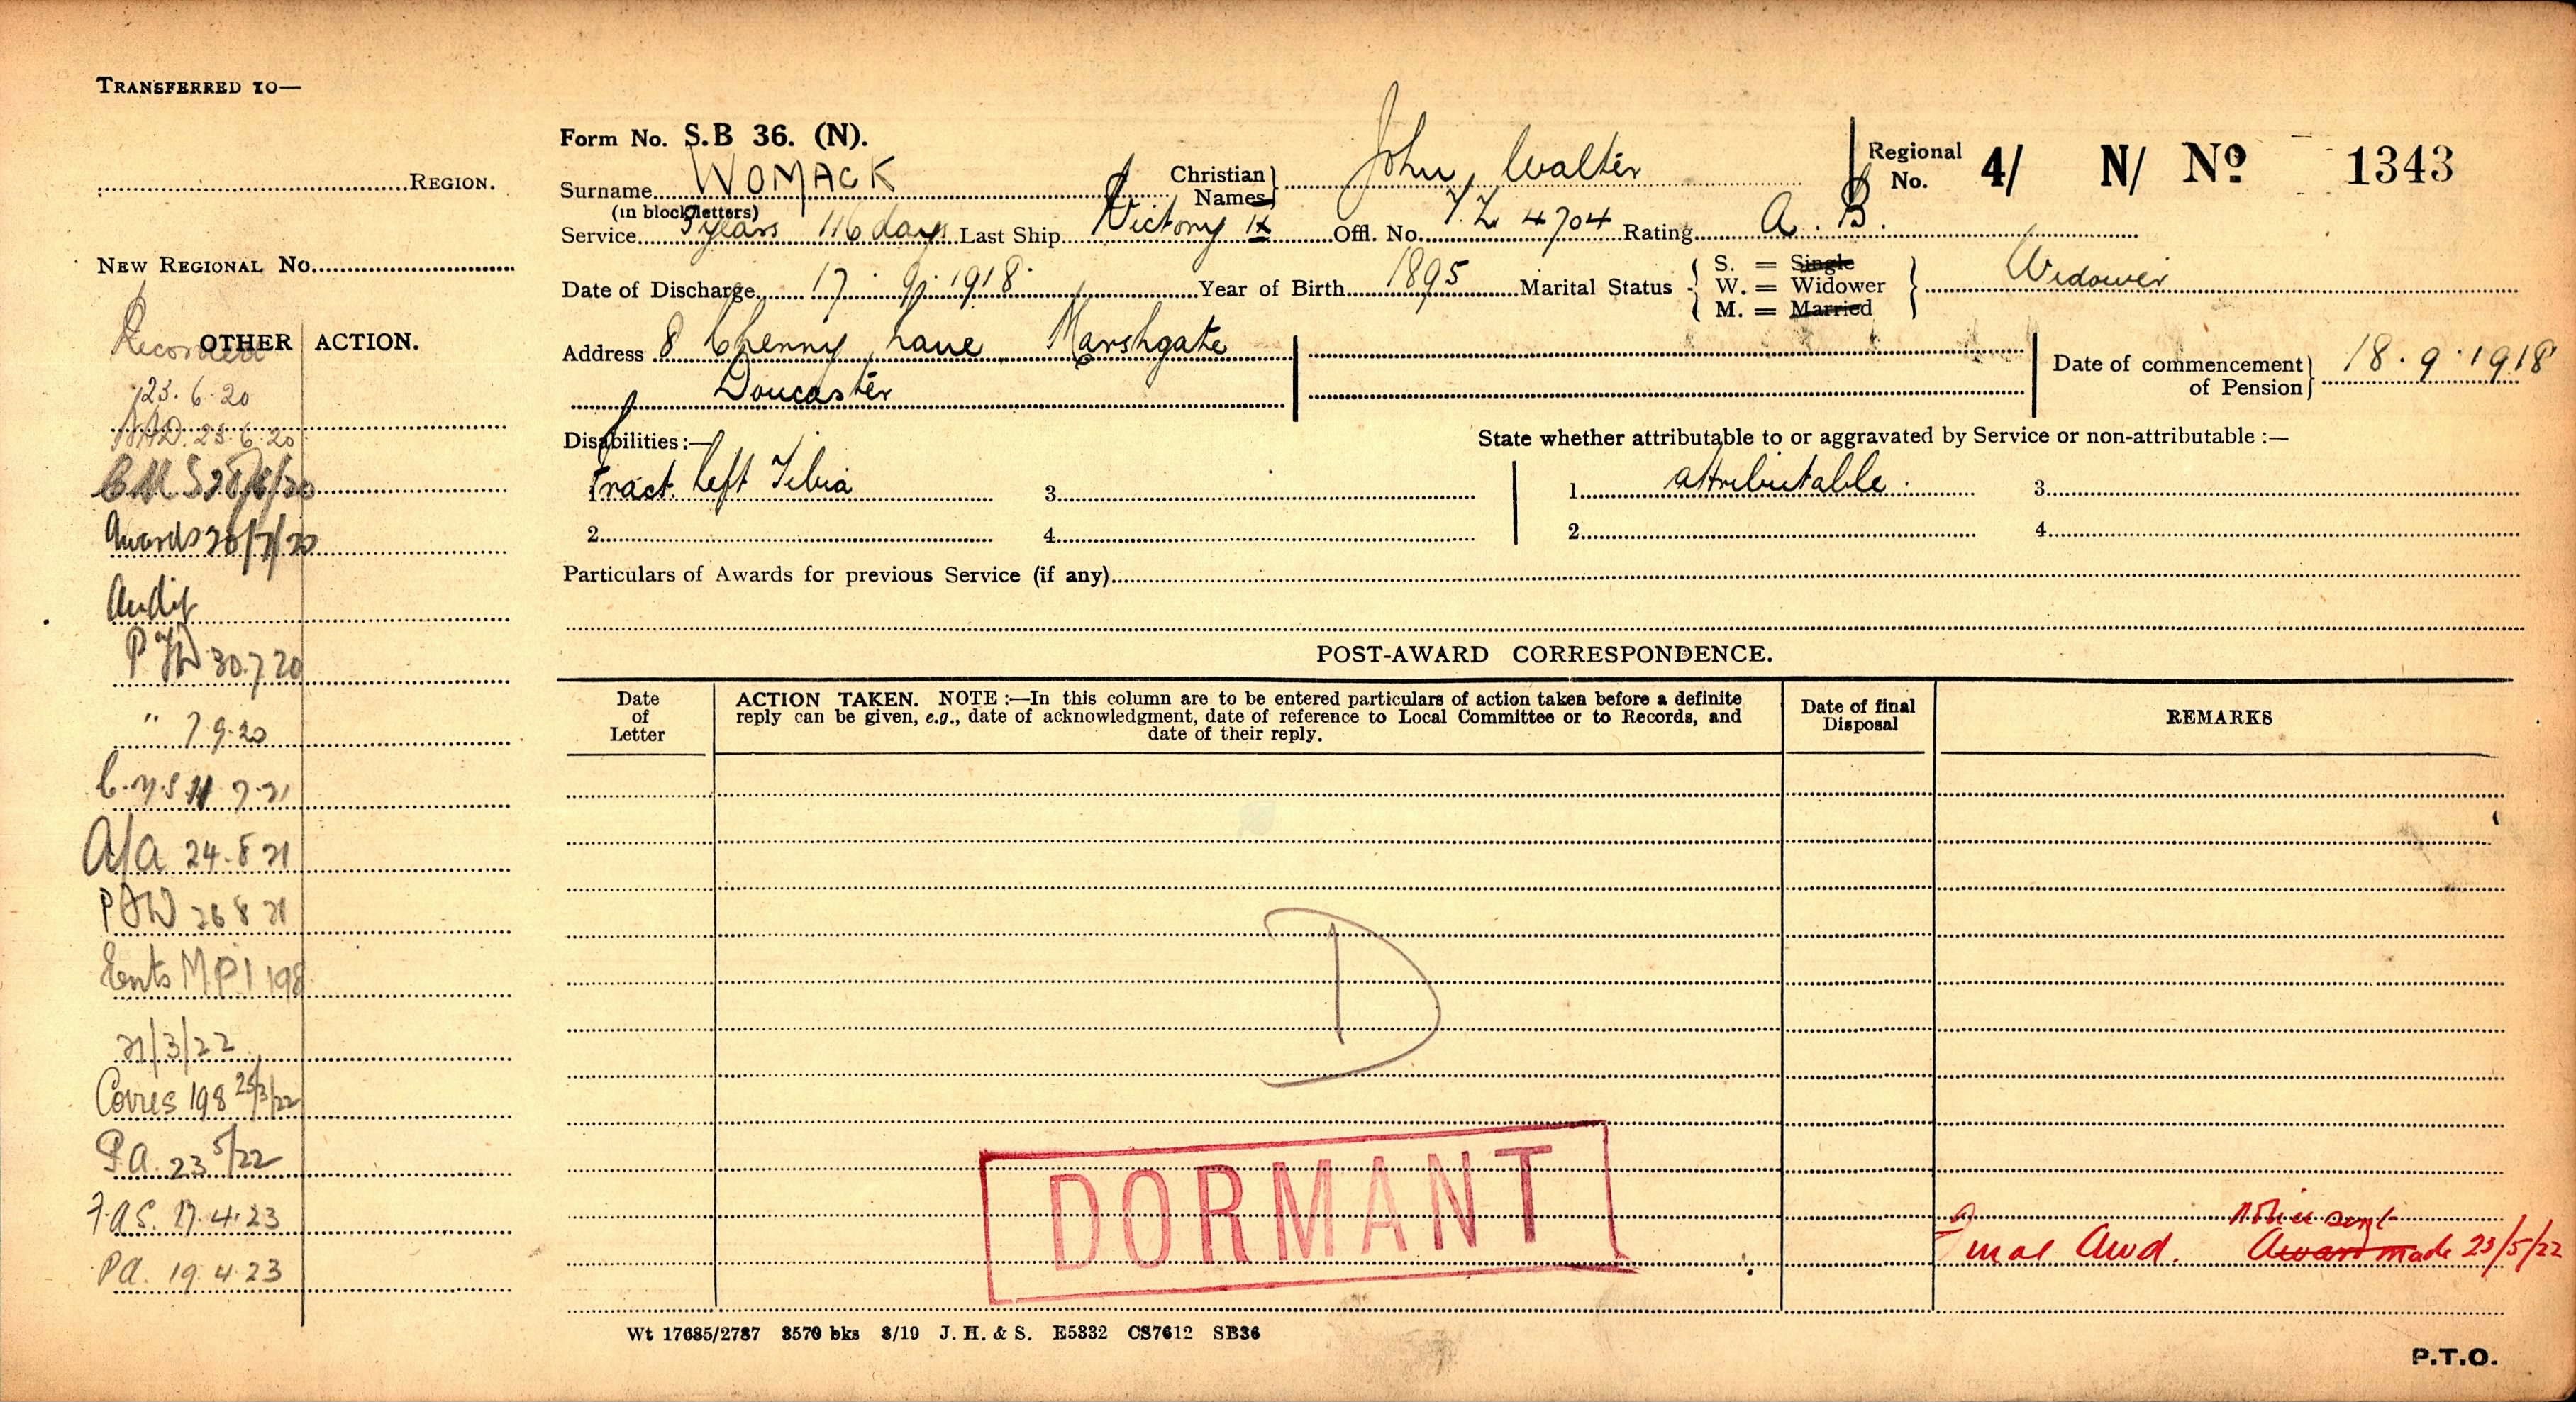 TRANSFERRED TO—
REGION.
NEW REGIONAL No.
Recorded
OTHER ACTION.
23.6.20
23.6.20
Awards 20/7/20
Audit
30.7.20
" 7.9.20
7.21
A/a 24.8.21
26 8 21
MPI 198
21/3/22
Corres 198 25/3/22
P.A. 23 5/22
F.A.S. 17.4.23
PA. 19.4.23
Form No. S.B 36. (N).
Surname WOMACK Christian Names John Walter Regional No. 4/ N/ No 1343
(in block letters)
Service 3 years 116 days Last Ship Victory IX Offl. No. T.Z. 4704 Rating A.B.
Date of Discharge 17.9.1918 Year of Birth 1895 Marital Status S. = Single W. = Widower M. = Married Widower
Address 8 Cherry Lane Marshgate
Doncaster
Date of commencement of Pension 18.9.1918
Disabilities:— State whether attributable to or aggravated by Service or non-attributable :—
Fract. Left Tibia 3 1 attributable. 3
2 4 2 4
Particulars of Awards for previous Service (if any)
POST-AWARD CORRESPONDENCE.
Date of Letter
ACTION TAKEN. NOTE :—In this column are to be entered particulars of action taken before a definite
reply can be given, e.g., date of acknowledgment, date of reference to Local Committee or to Records, and
date of their reply.
Date of final Disposal
REMARKS
D
DORMANT
Notice sent
Final Awd. Award made 23/5/22
Wt 17685/2787 3570 bks 8/19 J. H. & S. E5332 CS7612 SB36
P.T.O.